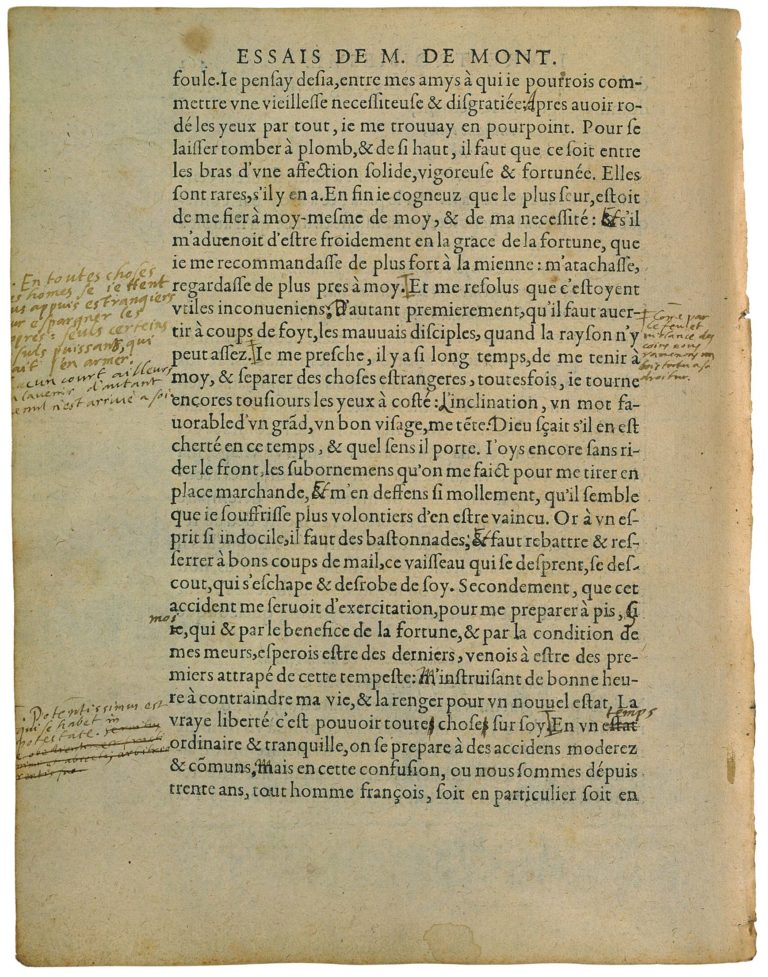 ESSAIS DE M. DE MONT.
foule. Ie pensay desia, entre mes amys à qui ie pourrois com-
mettre vne vieillesse necessiteuse & disgratiée: Apres auoir ro-
dé les yeux par tout, ie me trouuay en pourpoint. Pour se
laisser tomber à plomb, & de si haut, il faut que ce soit entre
les bras d'vne affection solide, vigoreuse & fortunée. Elles
sont rares, s'il y en a. En fin ie cogneuz que le plus seur, estoit
de me fier à moy-mesme de moy, & de ma necessité: Et s'il
m'aduenoit d'estre froidement en la grace de la fortune, que
ie me recommandasse de plus fort à la mienne: m'atachasse,
regardasse de plus pres à moy. Et me resolus que c'estoyent
vtiles inconueniens; D'autant premierement, qu'il faut auer-
tir à coups de foyt, les mauuais disciples, quand la rayson n'y
peut assez. Ie me presche, il y a si long temps, de me tenir à
moy, & separer des choses estrangeres, toutesfois, ie tourne
encores tousiours les yeux à costé: L'inclination, vn mot fa-
uorable d'vn grãd, vn bon visage, me tẽte. Dieu sçait s'il en est
cherté en ce temps, & quel sens il porte. I'oys encore sans ri-
der le front, les subornemens qu'on me faict pour me tirer en
place marchande, & m'en deffens si mollement, qu'il semble
que ie souffrisse plus volontiers d'en estre vaincu. Or à vn es-
prit si indocile, il faut des bastonnades; & faut rebattre & res-
serrer à bons coups de mail, ce vaisseau qui se desprent, se des-
cout, qui s'eschape & desrobe de soy. Secondement, que cet
accident me seruoit d'exercitation, pour me preparer à pis, Si
ie, qui & par le benefice de la fortune, & par la condition de
mes meurs, esperois estre des derniers, venois à estre des pre-
miers attrapé de cette tempeste: M'instruisant de bonne heu-
re à contraindre ma vie, & la renger pour vn nouuel estat, La
vraye liberté c'est pouuoir toute chose sur soy. En vn estat
ordinaire & tranquille, on se prepare à des accidens moderez
& cõmuns, Mais en cette confusion, ou nous sommes dépuis
trente ans, tout homme françois, soit en particulier soit en
En toutes choses
es homes se iettent
us appuis estrangiers
ur espargner les
pres: seuls certeins
suls puissans, qui
ait s'en armer.
acun court ailleurs
a l'auenir, d'autant
e nul n'est arriué a soi
Come par
le feu et
des
coins nous
ramenons un
bois tortu a sa
droitur.
mos
temps
Potentissimus est
qui se habet in
potestate.